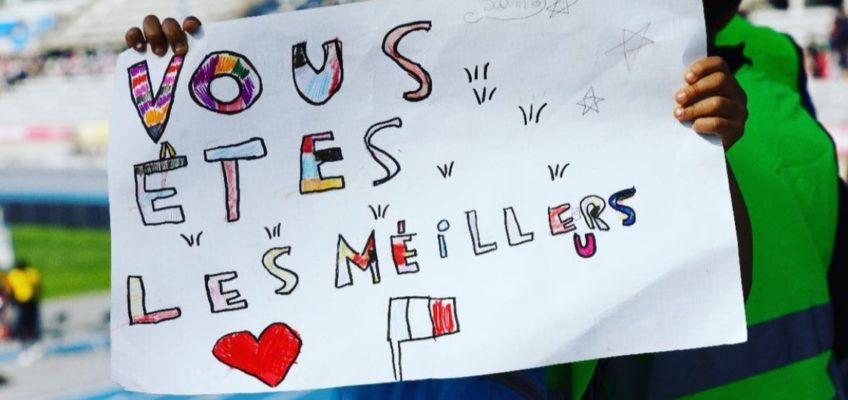 VOUS
ÊTES
LES MÉiLLEURS